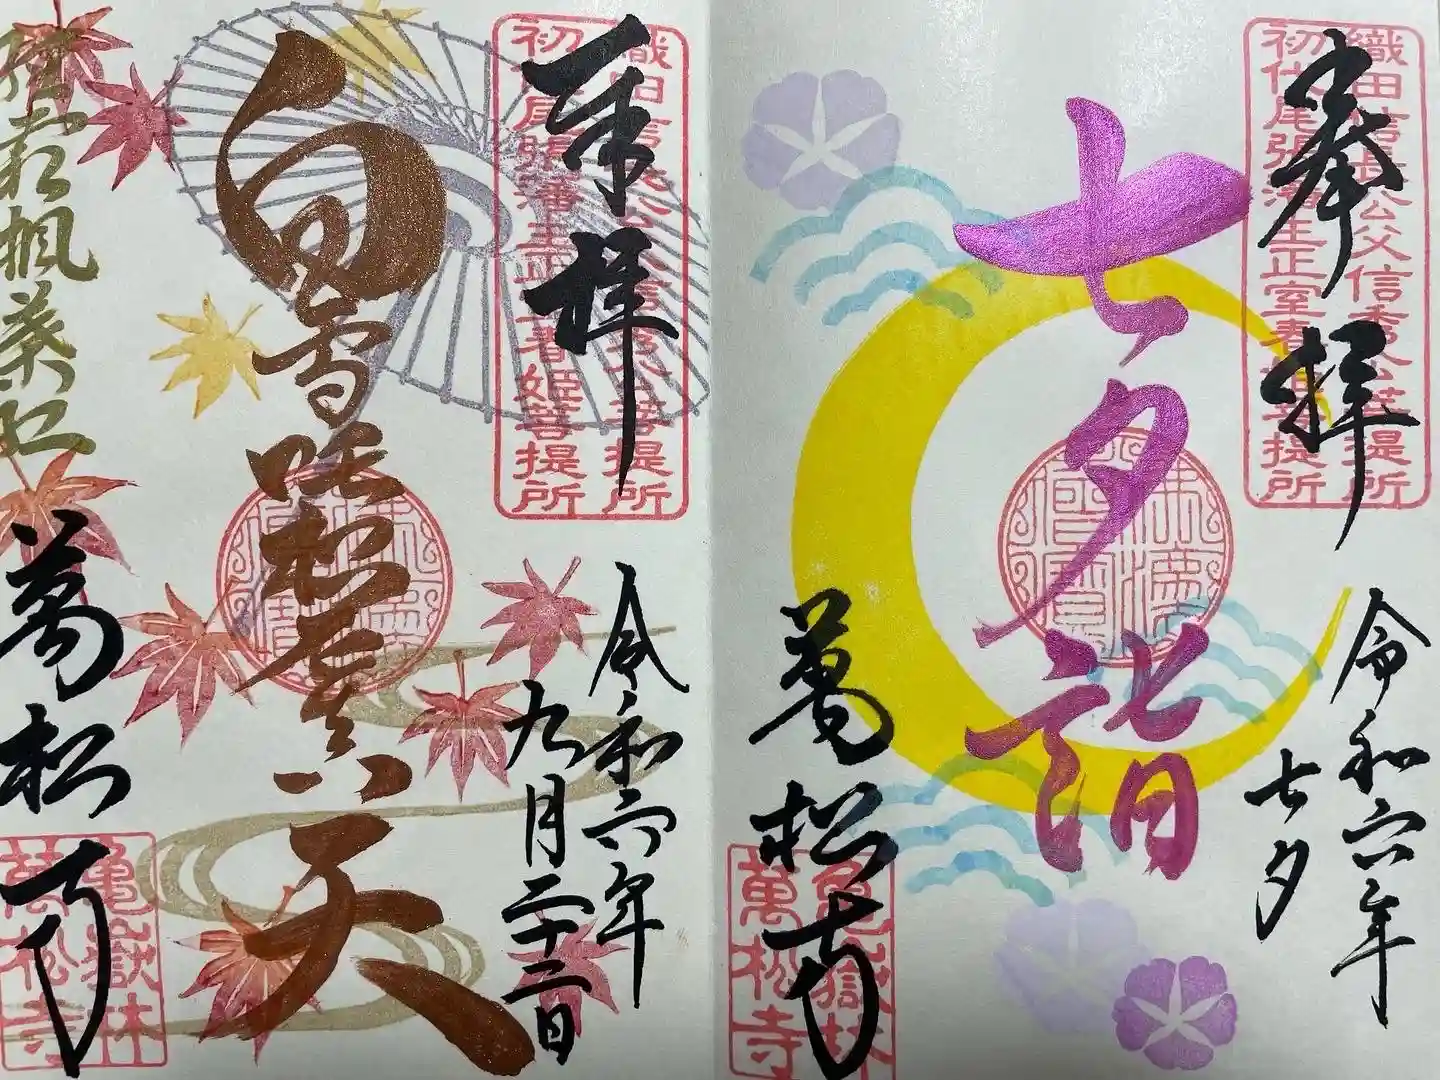 奉拝
織田信長公父信秀公菩提所
初代尾張藩主正室春姫菩提所
令和六年
七夕
七夕詣
萬松寺
亀嶽林
萬松寺
奉拝
織田信長公父信秀公菩提所
初代尾張藩主正室春姫菩提所
令和六年
九月二十二日
白雪吒枳真天
楓葉紅
萬松寺
亀嶽林
萬松寺